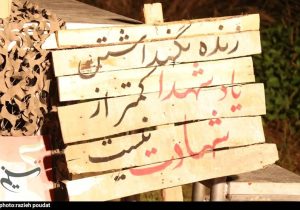 زنده نگهداشتن
یاد شهدا کمتر از
شهادت نیست
تسنیم
photo:razieh poudat